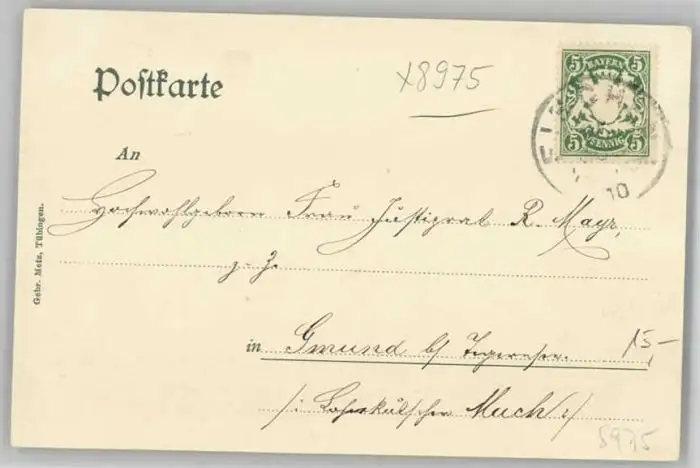 Postkarte
x8975
5 BAYERN 5
5 PFENNIG 5
10
An
Hochwohlgeboren Frau Justizrat R. Mayr,
z. Z.
in Gmund b/ Tegernsee.
15,-
Much :/
8975
Gebr. Metz, Tübingen.